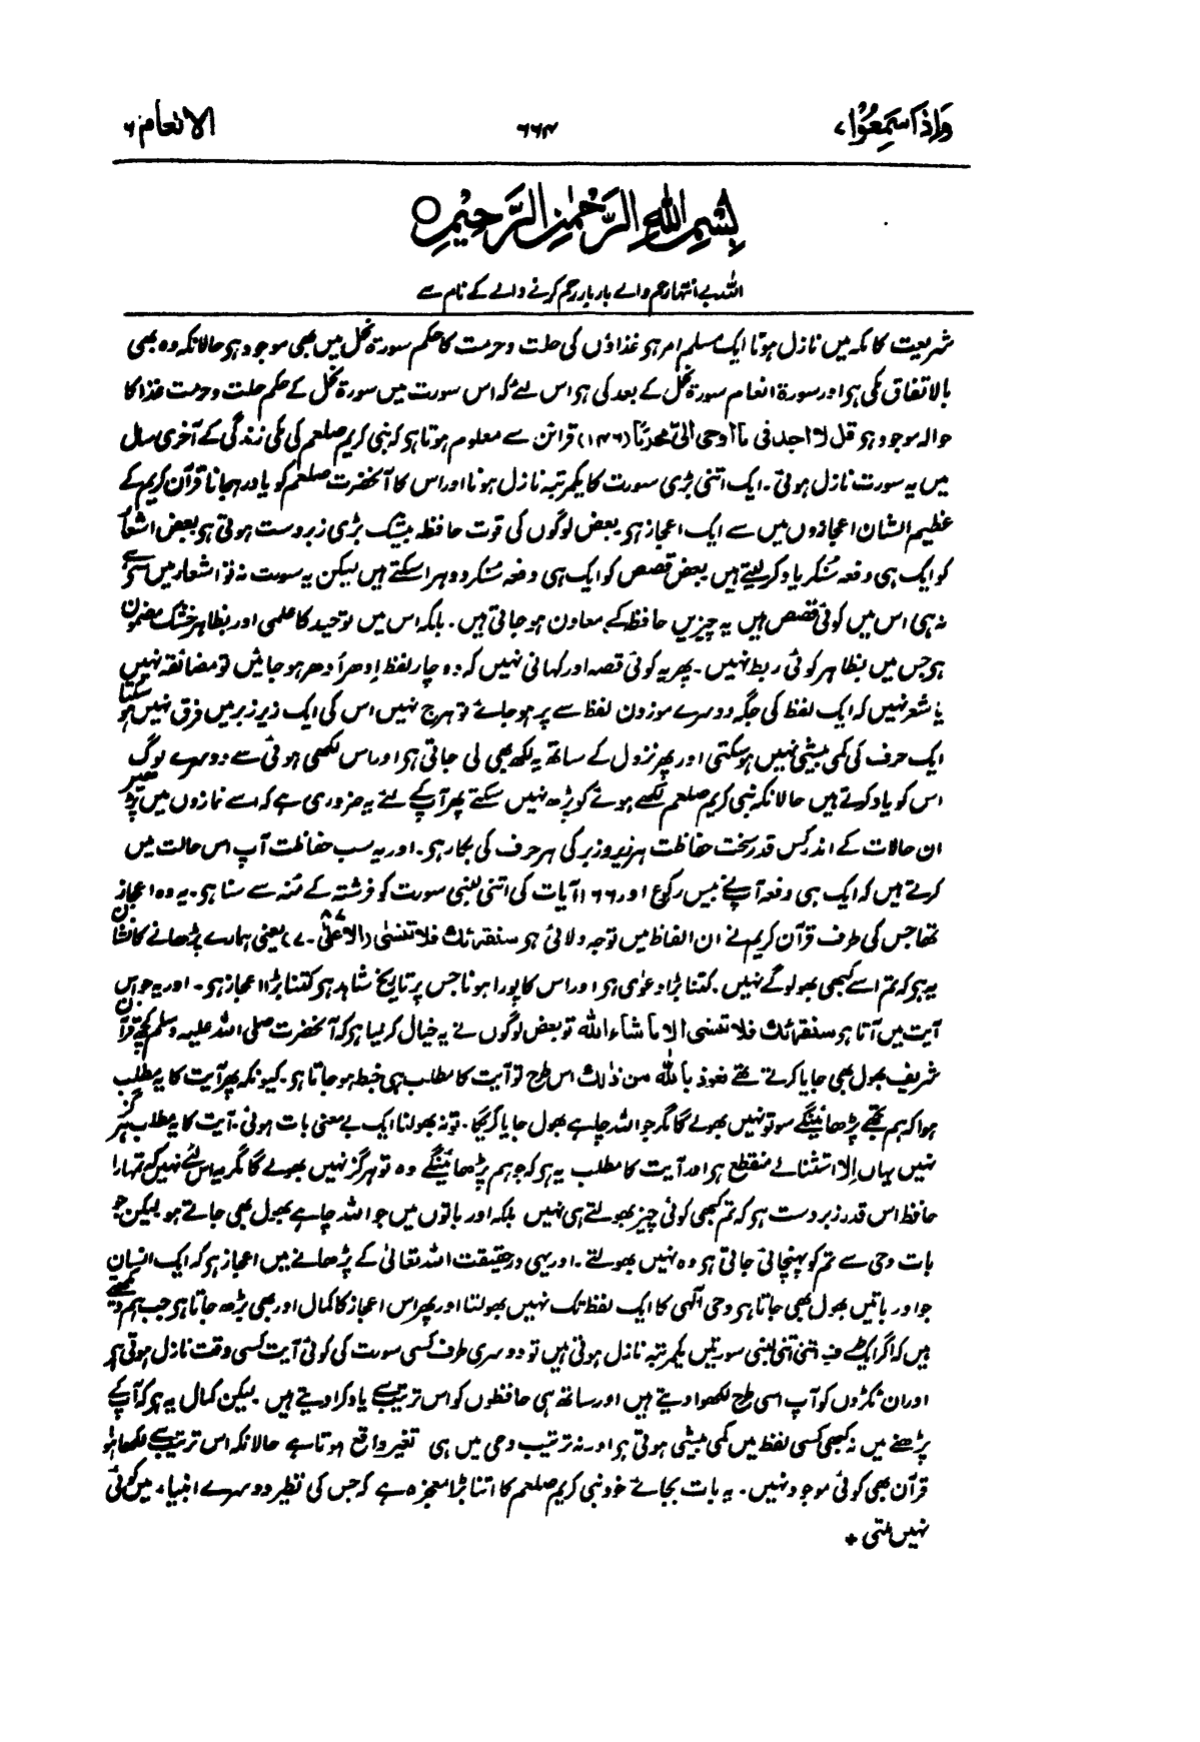 وَاِذَا سَمِعُوْا ۷
۶۶۴
الانعام ۶
بِسْمِ اللهِ الرَّحْمٰنِ الرَّحِيْمِ ○
اللہ بے انتہا رحم والے بار بار رحم کرنے والے کے نام سے
شریعت کا مکہ میں نازل ہونا ایک مسلم امر ہو غذاؤں کی حلت و حرمت کا حکم سورۃ نحل میں بھی موجود ہو حالانکہ وہ بھی
بالاتفاق مکی ہو اور سورۃ انعام سورۃ نحل کے بعد کی ہو اس لئے کہ اس سورت میں سورۃ نحل کے حکم حلت و حرمت غذا کا
حوالہ موجود ہو قل لا اجد فی ما اوحی الیّ محرمًا (۱۴۶) قرائن سے معلوم ہوتا ہو کہ نبی کریم صلعم کی مکی زندگی کے آخری سال
میں یہ سورت نازل ہوئی۔ ایک اتنی بڑی سورت کا یکمرتبہ نازل ہونا اور اس کا آنحضرت صلعم کو یاد رہجانا قرآن کریم کے
عظیم الشان اعجازوں میں سے ایک اعجاز ہو۔ بعض لوگوں کی قوت حافظہ بیشک بڑی زبردست ہوتی ہو بعض اشعار
کو ایک ہی دفعہ سُنکر یاد کر لیتے ہیں بعض قصص کو ایک ہی دفعہ سُنکر دوہرا سکتے ہیں لیکن یہ سورت نہ تو اشعار میں سے ہو
نہ ہی اس میں کوئی قصص ہیں یہ چیزیں حافظہ کے معاون ہو جاتی ہیں۔ بلکہ اس میں توحید کا علمی اور بظاہر خشک مضمون
ہو جس میں بظاہر کوئی ربط نہیں۔ پھر یہ کوئی قصہ اور کہانی نہیں کہ دو چار لفظ اِدھر اُدھر ہو جائیں تو مضائقہ نہیں
یا شعر نہیں کہ ایک لفظ کی جگہ دوسرے موزون لفظ سے پر ہو جائے تو ہرج نہیں اس کی ایک زیر زبر میں فرق نہیں ہو سکتا
ایک حرف کی کمی بیشی نہیں ہو سکتی اور پھر نزول کے ساتھ یہ لکھ بھی لی جاتی ہو اور اس لکھی ہوئی سے دوسرے لوگ
اس کو یاد کرتے ہیں حالانکہ نبی کریم صلعم لکھے ہوئے کو پڑھ نہیں سکتے پھر آپ کے لئے یہ ضروری ہے کہ اسے نمازوں میں پڑھیں
ان حالات کے اندر کس قدر سخت حفاظت ہر زیر و زبر کی ہر حرف کی بکار ہو۔ اور یہ سب حفاظت آپ اس حالت میں
کرتے ہیں کہ ایک ہی دفعہ آپنے بیس رکوع اور ۱۶۶ آیات کی اتنی لمبی سورت کو فرشتہ کے مُنہ سے سنا ہو۔ یہ وہ اعجاز
تھا جس کی طرف قرآن کریم نے ان الفاظ میں توجہ دلائی ہو سنقرئك فلا تنسٰی (الاعلٰی ۸۷۔ ۷) یعنی ہمارے پڑھانے کا نشان
یہ ہو کہ تم اسے کبھی بھولو گے نہیں۔ کتنا بڑا دعوٰی ہو اور اس کا پورا ہونا جس پر تاریخ شاہد ہو کتنا بڑا اعجاز ہو۔ اور یہ جو اس
آیت میں آتا ہو سنقرئك فلا تنسٰی الا ما شاء الله تو بعض لوگوں نے یہ خیال کر لیا ہو کہ آنحضرت صلی اللہ علیہ وسلم کچھ قرآن
شریف بھول بھی جایا کرتے تھے نعوذ بالله من ذٰلك اس طرح تو آیت کا مطلب ہی خبط ہو جاتا ہو۔ کیونکہ پھر آیت کا یہ مطلب
ہوا کہ ہم تجھے پڑھائینگے سو تو نہیں بھولے گا مگر جو اللہ چاہے بھول جایا کریگا۔ تو نہ بھولنا ایک بے معنی بات ہوئی۔ آیت کا یہ مطلب ہرگز
نہیں یہاں اِلا استثنائے منقطع ہو اور آیت کا مطلب یہ ہو کہ جو ہم پڑھائینگے وہ تو ہرگز نہیں بھولے گا مگر یہ اس لئے نہیں کہ تمہارا
حافظ اس قدر زبردست ہو کہ تم کبھی کوئی چیز بھولتے ہی نہیں بلکہ اور باتوں میں جو اللہ چاہے بھول بھی جاتے ہو لیکن جو
بات وحی سے تم کو پہنچائی جاتی ہو وہ نہیں بھولتے۔ اور یہی درحقیقت اللہ تعالٰی کے پڑھانے میں اعجاز ہو کہ ایک انسان
جو اور باتیں بھول بھی جاتا ہو وحی الٰہی کا ایک لفظ تک نہیں بھولتا اور پھر اس اعجاز کا کمال اور بھی بڑھ جاتا ہو جب ہم دیکھتے
ہیں کہ اگر ایکطرف اتنی اتنی لمبی سورتیں یکمرتبہ نازل ہوتی ہیں تو دوسری طرف کسی سورت کی کوئی آیت کسی وقت نازل ہوتی ہو
اور ان ٹکڑوں کو آپ اسی طرح لکھوا دیتے ہیں اور ساتھ ہی حافظوں کو اس ترتیب سے یاد کرا دیتے ہیں لیکن کمال یہ ہو کہ آپ کے
پڑھنے میں نہ کبھی کسی لفظ میں کمی بیشی ہوتی ہو اور نہ ترتیب وحی میں ہی تغیر واقع ہوتا ہے حالانکہ اس ترتیب سے لکھا ہوا
قرآن بھی کوئی موجود نہیں۔ یہ بات بجائے خود نبی کریم صلعم کا اتنا بڑا معجزہ ہے کہ جس کی نظیر دوسرے انبیاء میں کوئی
نہیں ملتی ٭